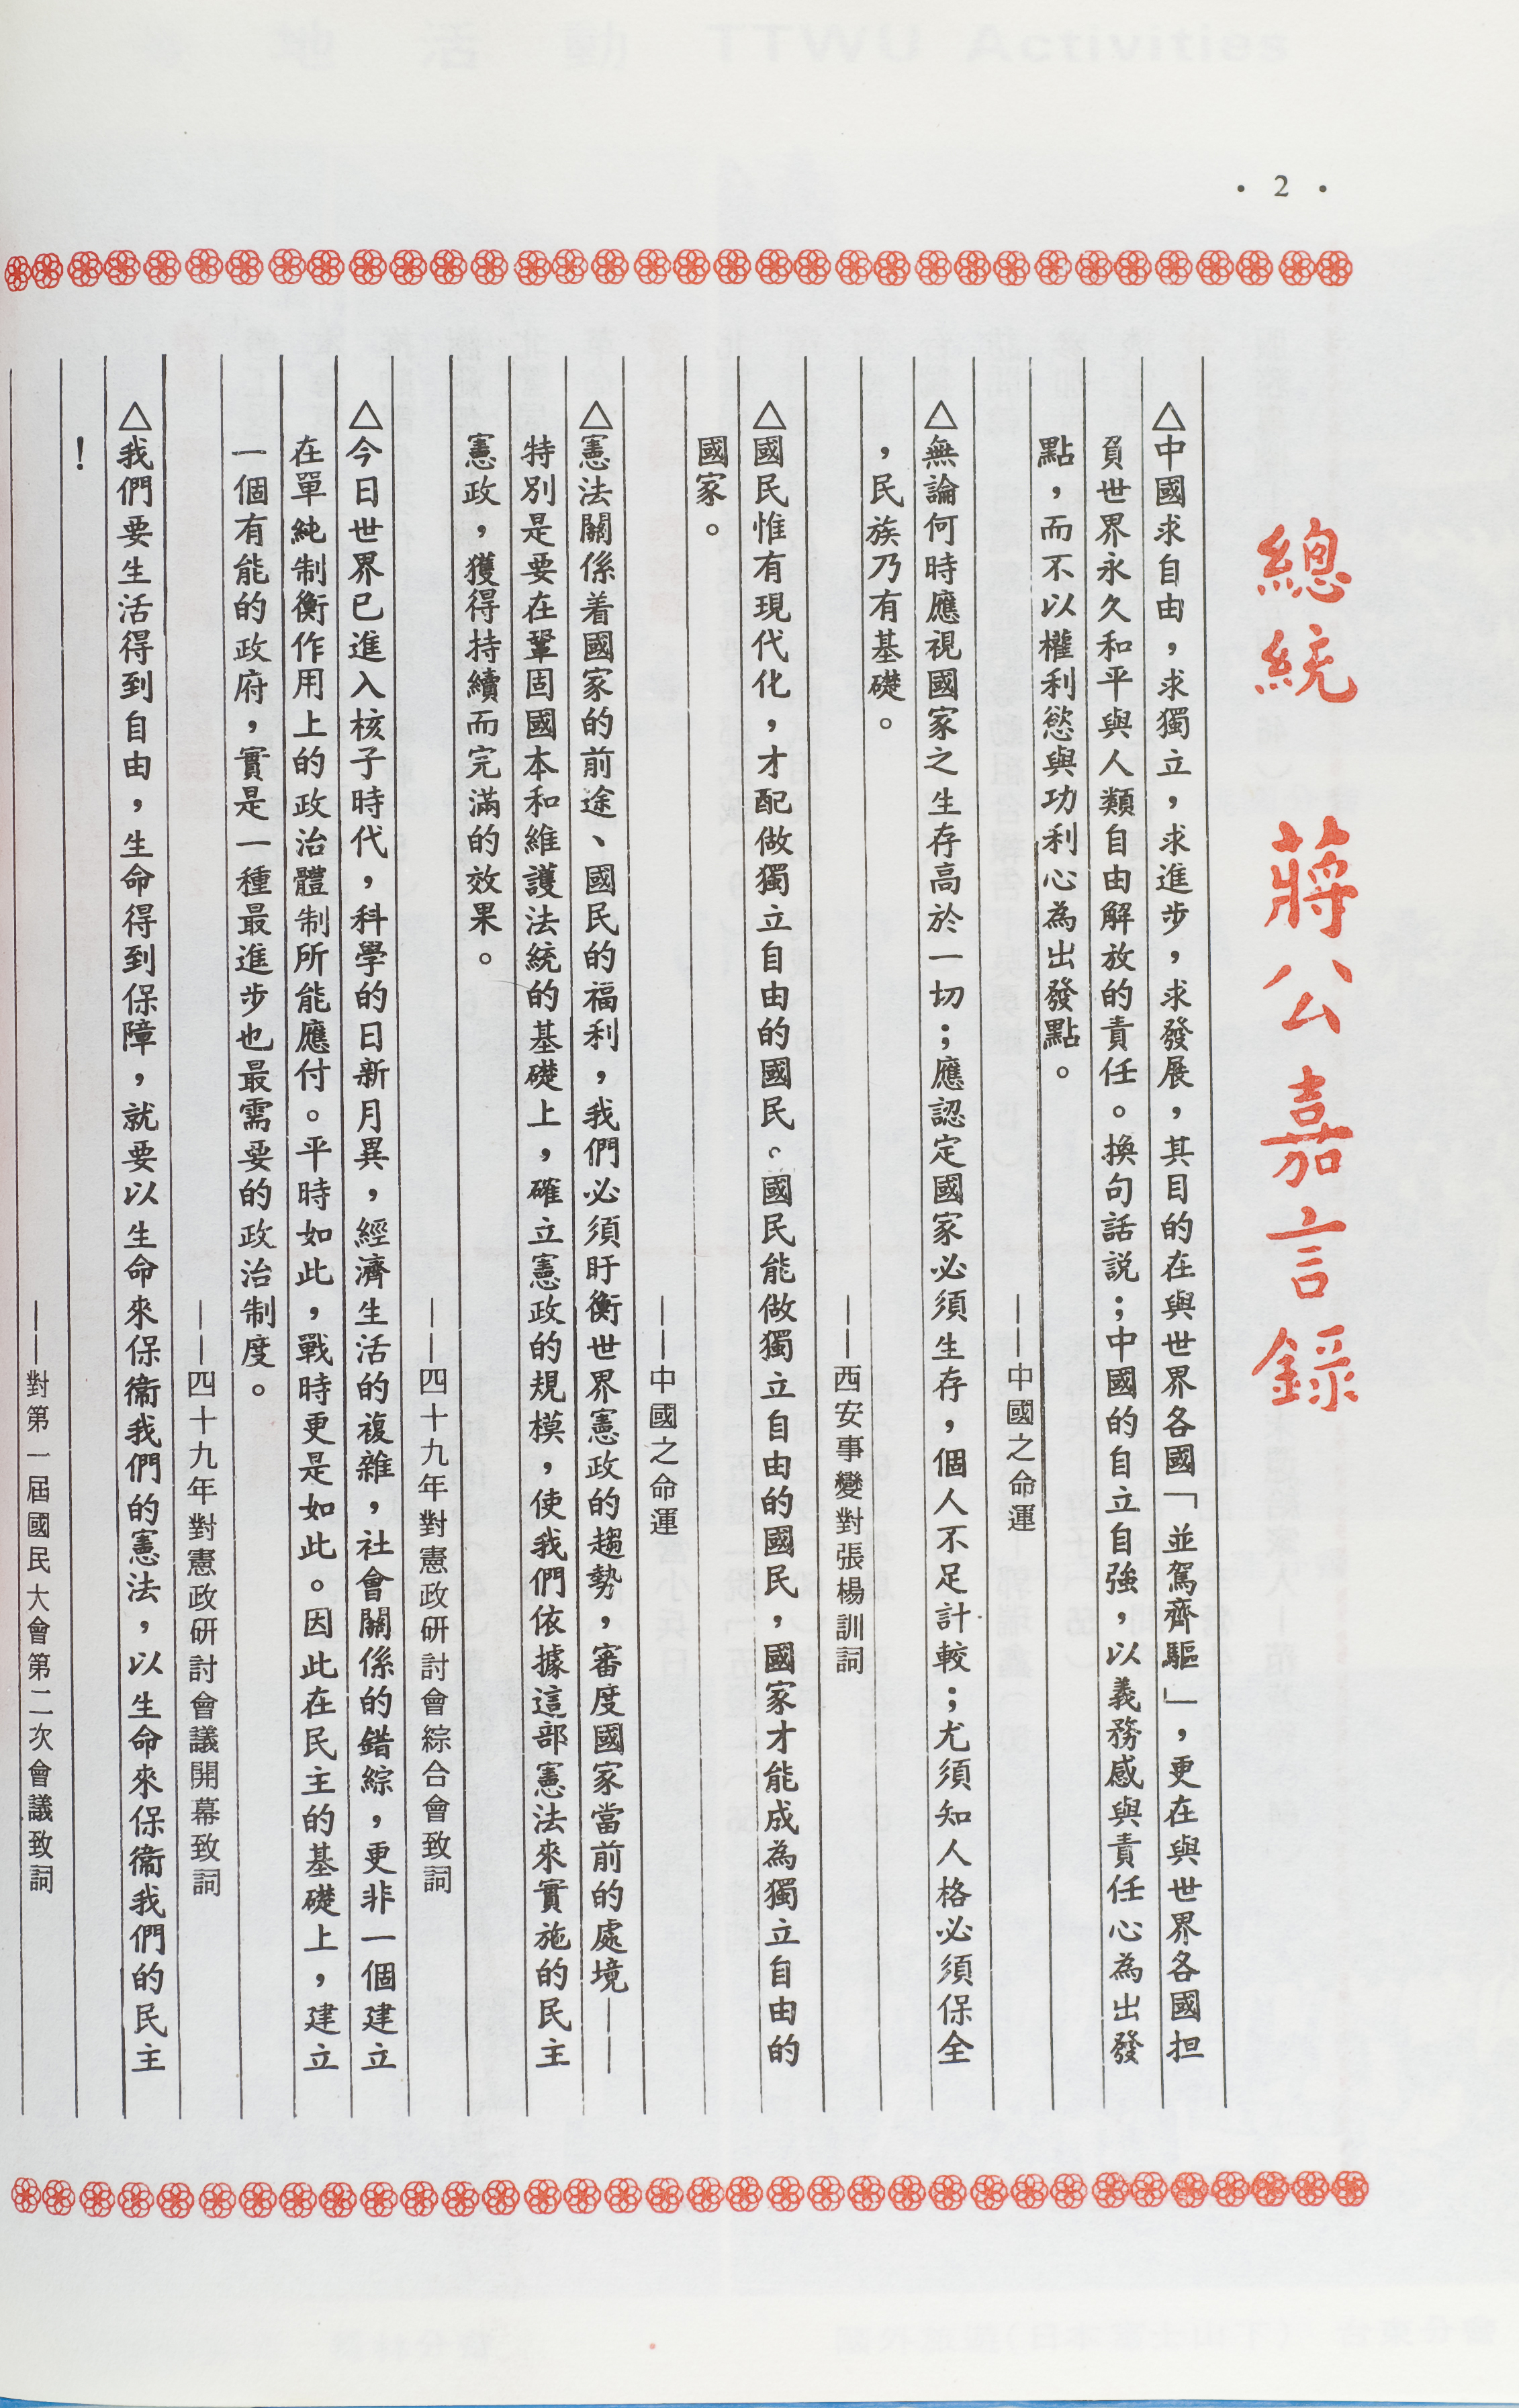 • 2 •
總統 蔣公嘉言錄
△中國求自由，求獨立，求進步，求發展，其目的在與世界各國「並駕齊驅」，更在與世界各國担
負世界永久和平與人類自由解放的責任。換句話説；中國的自立自強，以義務感與責任心為出發
點，而不以權利慾與功利心為出發點。
——中國之命運
△無論何時應視國家之生存高於一切；應認定國家必須生存，個人不足計較；尤須知人格必須保全
，民族乃有基礎。
——西安事變對張楊訓詞
△國民惟有現代化，才配做獨立自由的國民。國民能做獨立自由的國民，國家才能成為獨立自由的
國家。
——中國之命運
△憲法關係着國家的前途、國民的福利，我們必須盱衡世界憲政的趨勢，審度國家當前的處境——
特別是要在鞏固國本和維護法統的基礎上，確立憲政的規模，使我們依據這部憲法來實施的民主
憲政，獲得持續而完滿的效果。
——四十九年對憲政研討會綜合會致詞
△今日世界已進入核子時代，科學的日新月異，經濟生活的複雜，社會關係的錯綜，更非一個建立
在單純制衡作用上的政治體制所能應付。平時如此，戰時更是如此。因此在民主的基礎上，建立
一個有能的政府，實是一種最進步也最需要的政治制度。
——四十九年對憲政研討會議開幕致詞
△我們要生活得到自由，生命得到保障，就要以生命來保衞我們的憲法，以生命來保衞我們的民主
！
——對第一屆國民大會第二次會議致詞